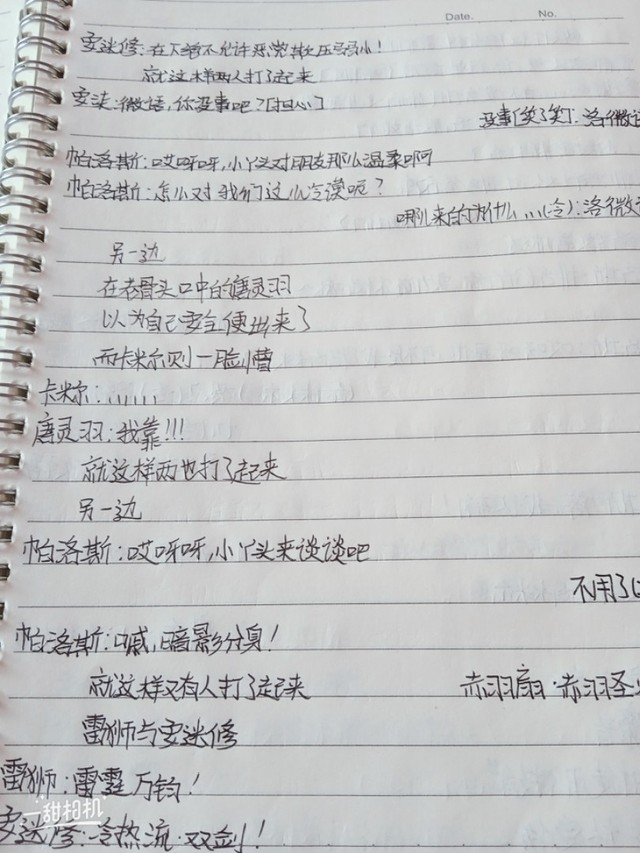 Date. No.
安迷修:在下绝不允许恶党欺压弱小!
就这样两人打了起来
安莫:微语,你没事吧?[担心]
没事[笑了笑]:洛微语
帕洛斯:哎呀呀,小丫头对朋友那么温柔啊
帕洛斯:怎么对我们这么冷漠呢?
哪儿来的为什么,,,(冷):洛微语
另一边
在老骨头口中的唐灵羽
以为自己安全便出来了
而卡米尔则一脸懵
卡米尔:,,,,,,
唐灵羽:我靠!!!
就这样两也打了起来
另一边
帕洛斯:哎呀呀,小丫头来谈谈吧
不用了
帕洛斯:嘁,暗影分身!
就这样又有人打了起来
赤羽扇·赤羽圣
雷狮与安迷修
雷狮:雷霆万钧!
安迷修:冷热流·双剑!
一甜相机